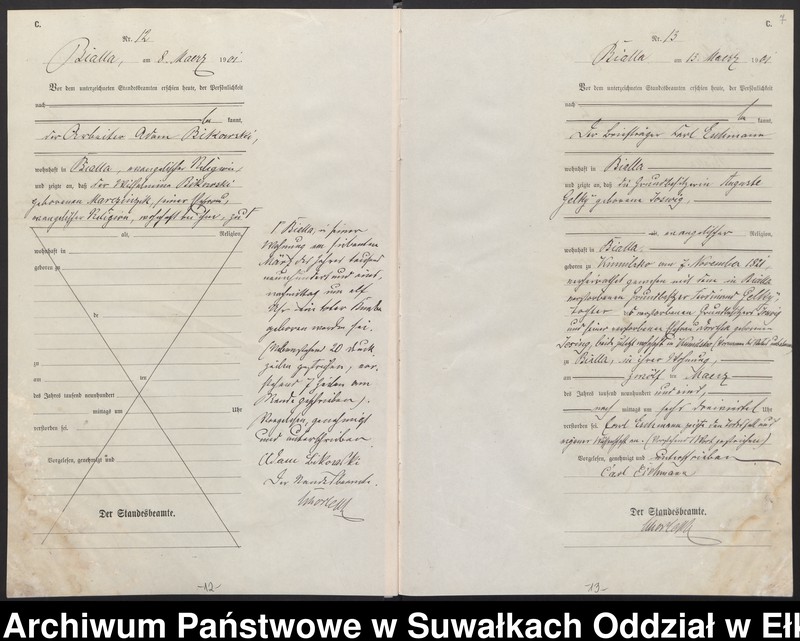 C.
Nr. 12
Bialla, am 8. Maerz 1901
Vor dem unterzeichneten Standesbeamten erschien heute, der Persönlichkeit
nach
be kannt,
der Arbeiter Adam Bikowski,
wohnhaft in Bialla, evangelischer Religion,
und zeigte an, daß der Wilhelmina Bikowski
geborenen Marczinzyk, seiner Ehefrau,
evangelischer Religion, wohnhaft bei ihm, zu
alt, Religion,
wohnhaft in
geboren zu
de
zu
am ten
des Jahres tausend neunhundert
mittags um Uhr
verstorben sei.
Vorgelesen, genehmigt und
Der Standesbeamte.
Bialla, in seiner
Wohnung am siebenten
März des Jahres tausend
neunhundert und eins,
nachmittags um elf
Uhr ein toter Knabe
geboren worden sei.
(Nebenstehend 20 Druck
zeilen gestrichen, vor-
stehend 7 Zeilen am
Rande geschrieben).
Vorgelesen, genehmigt
und unterschrieben
Adam Bikowski
Der Standesbeamte.
-12-
C. 7
Nr. 13
Bialla am 13. Maerz 1901
Vor dem unterzeichneten Standesbeamten erschien heute, der Persönlichkeit
nach
be kannt,
Der Briefträger Carl Eichmann
wohnhaft in Bialla
und zeigte an, daß die Grundbesitzerin Auguste
geborene
evangelischer Religion,
wohnhaft in Bialla,
geboren zu Kumilsko am 7. November 1821,
verheirathet gewesen mit dem in Bialla
verstorbenen Grundbesitzer Ferdinand
Tochter des verstorbenen Grundbesitzers
und seiner verstorbenen Ehefrau geborene
beide zuletzt wohnhaft in Kumilsko
zu Bialla, in ihrer Wohnung,
am zwölften Maerz
des Jahres tausend neunhundert und eins,
nach mittags um sechs dreiviertel Uhr
verstorben sei. Carl Eichmann
eigener Wissenschaft an.
Vorgelesen, genehmigt und unterschrieben
Carl Eichmann
Der Standesbeamte.
-13-
Archiwum Państwowe w Suwałkach Oddział w Eł